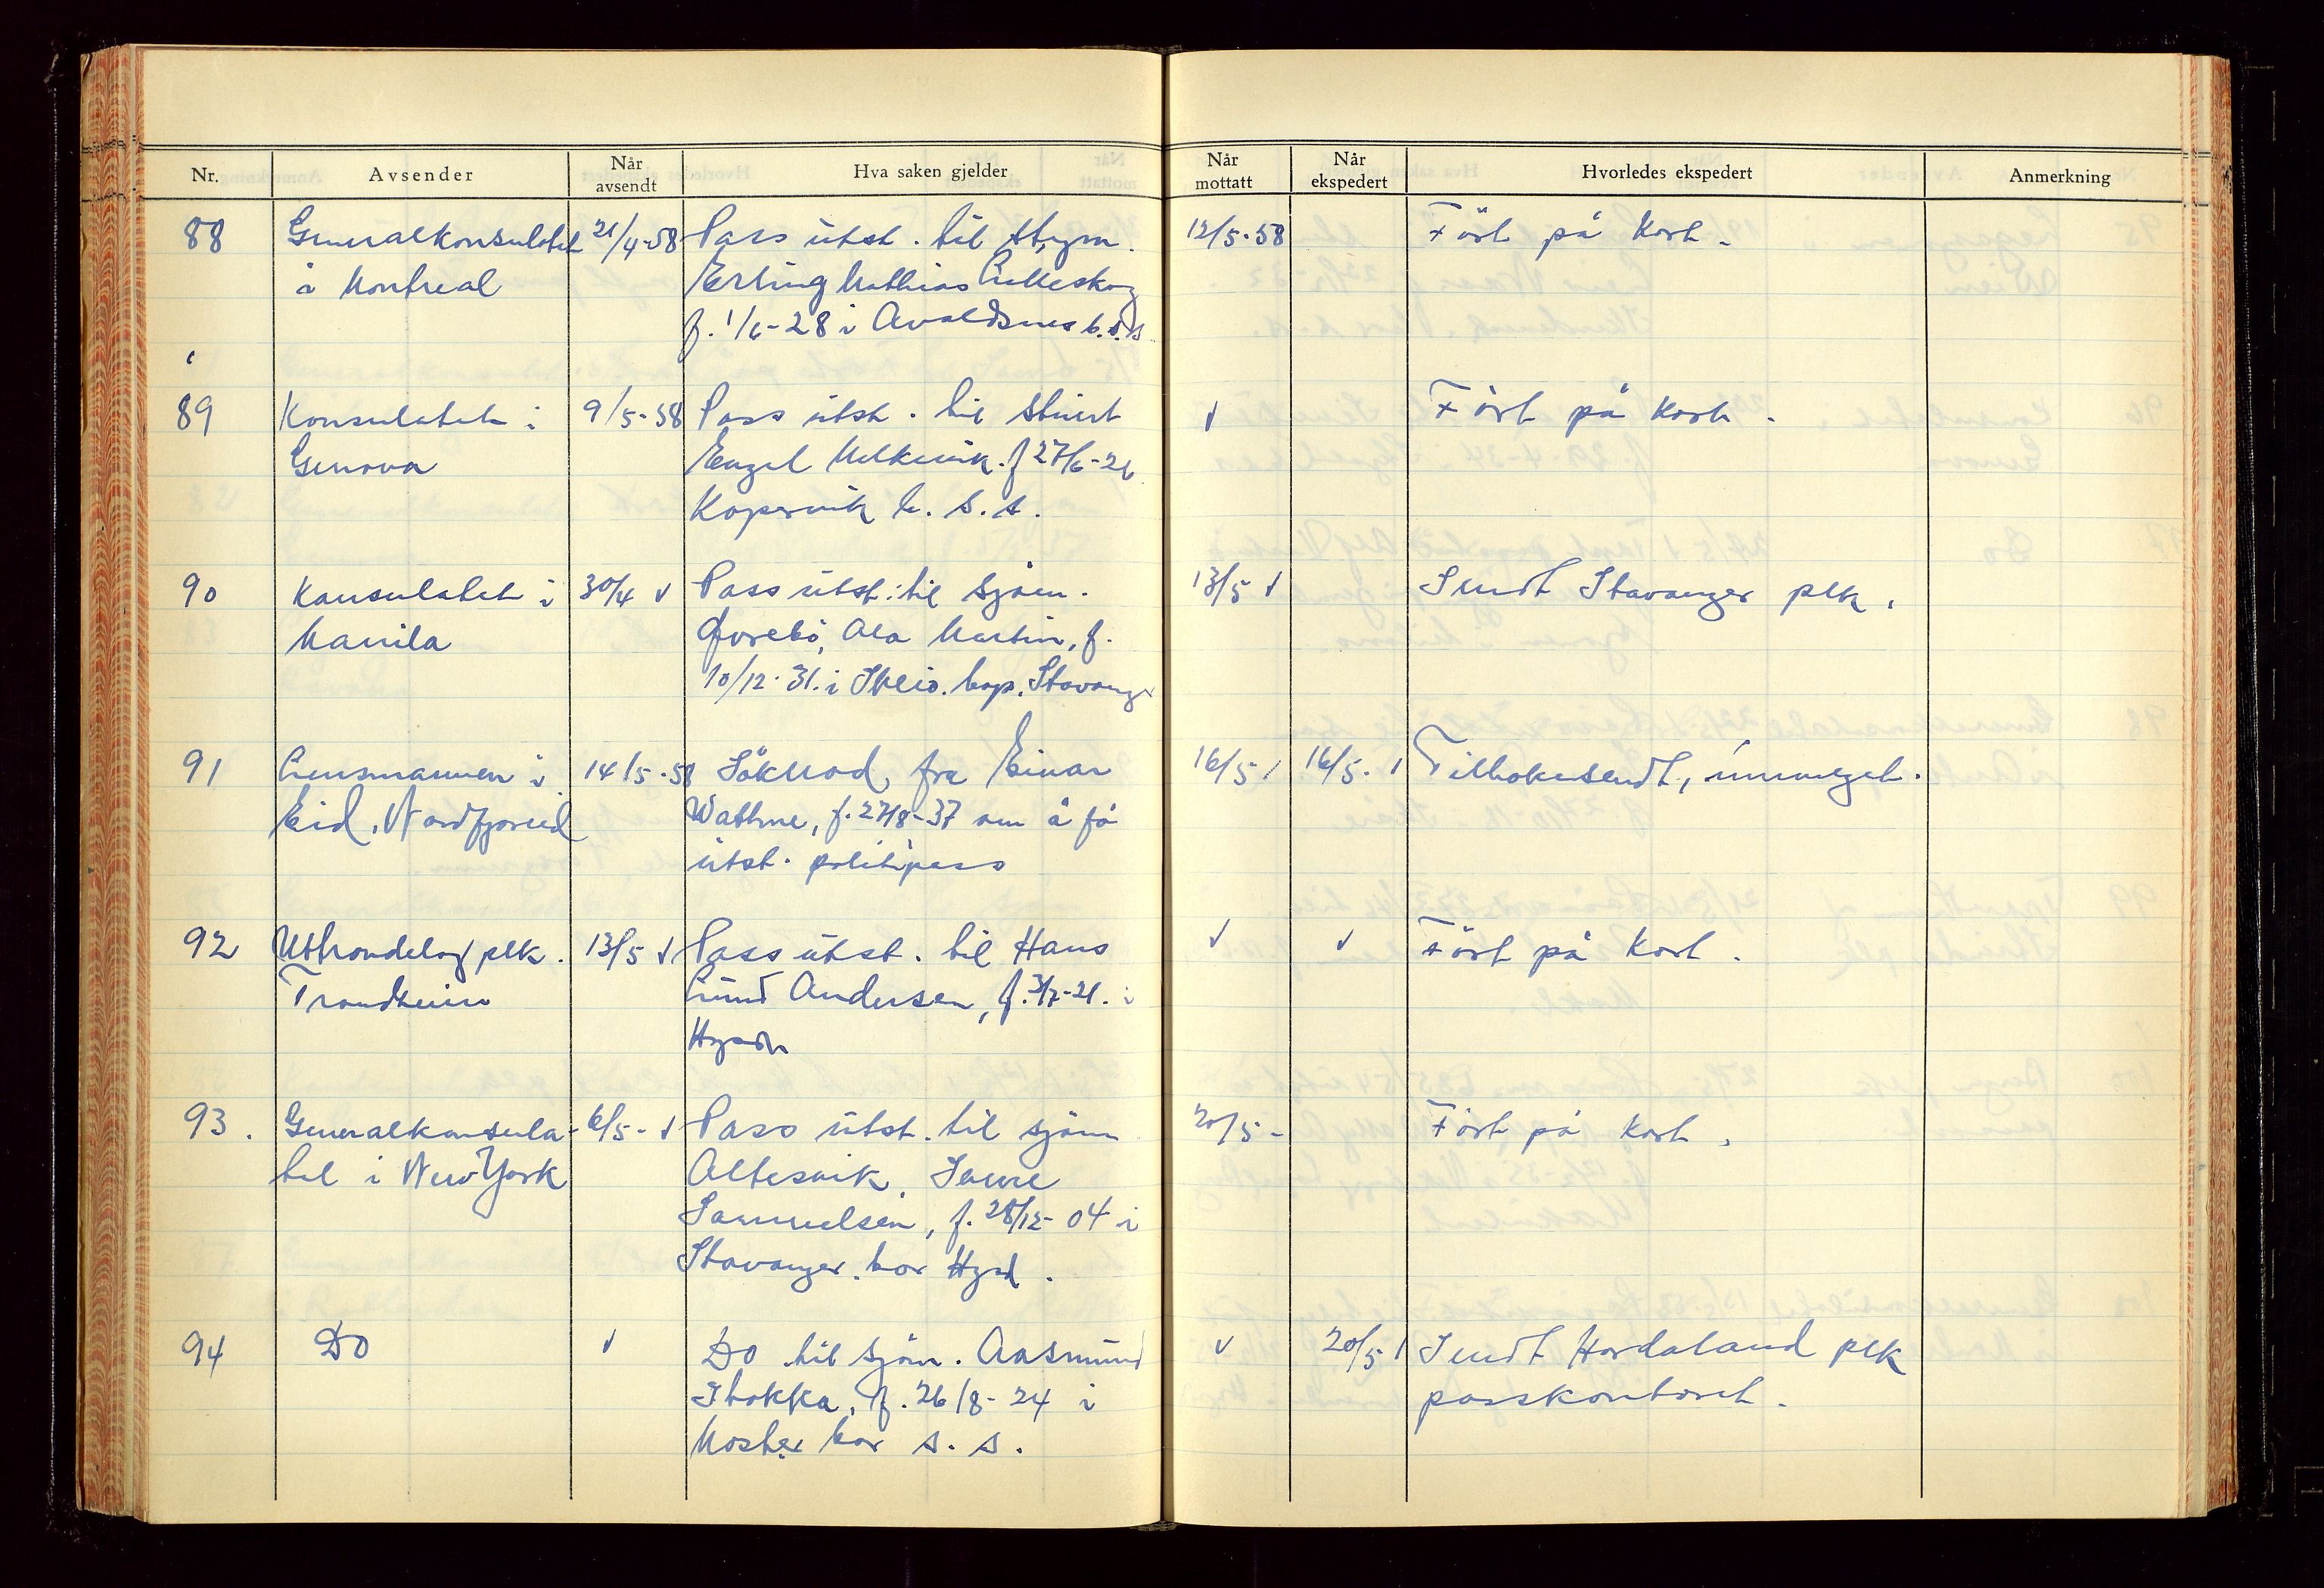 Nr. Avsender Når avsendt Hva saken gjelder Når mottatt Når ekspedert Hvorledes ekspedert Anmerkning
88 Generalkonsulatet 21/4-58 Pass utst. til 12/5-58 Fört på Kort.
i Montreal Erling Mathias
f. 1/6-28 i Avaldsnes b.s.s.
89 Konsulatet i 9/5-58 Pass utst. til Stuert √ Fört på Kort.
Genova Engel f 27/6-26
Kopervik b. s.s.
90 Konsulatet i 30/4 √ Pass utst. til sjöm. 13/5 √ Sendt Stavanger plk.
Manila Martin, f.
10/12-31. i bop. Stavanger
91 Lensmannen i 14/5-58 Söknad, fra Einar 16/5 / 16/5. / Tilbakesendt, innvilget.
Eid, Nordfjoreid Wathne, f. 27/8-37 om å få
utst. politipass
92 Uttrondelag plk. 13/5 √ Pass utst. til Hans √ √ Fört på Kort.
Trondheim Lund Andersen, f. 3/7-21. i
93. Generalkonsula- 6/5- √ Pass utst. til sjöm 20/5- Fört på Kort.
tet i New York Altesvik,
Samuelsen, f. 28/12-04 i
Stavanger. bor Hgsd.
94 Do √ Do til sjöm. Aasmund √ 20/5 / Sendt Hordaland plk
Stokka, f. 26/8-24 i passkontoret.
Moster bor s.s.